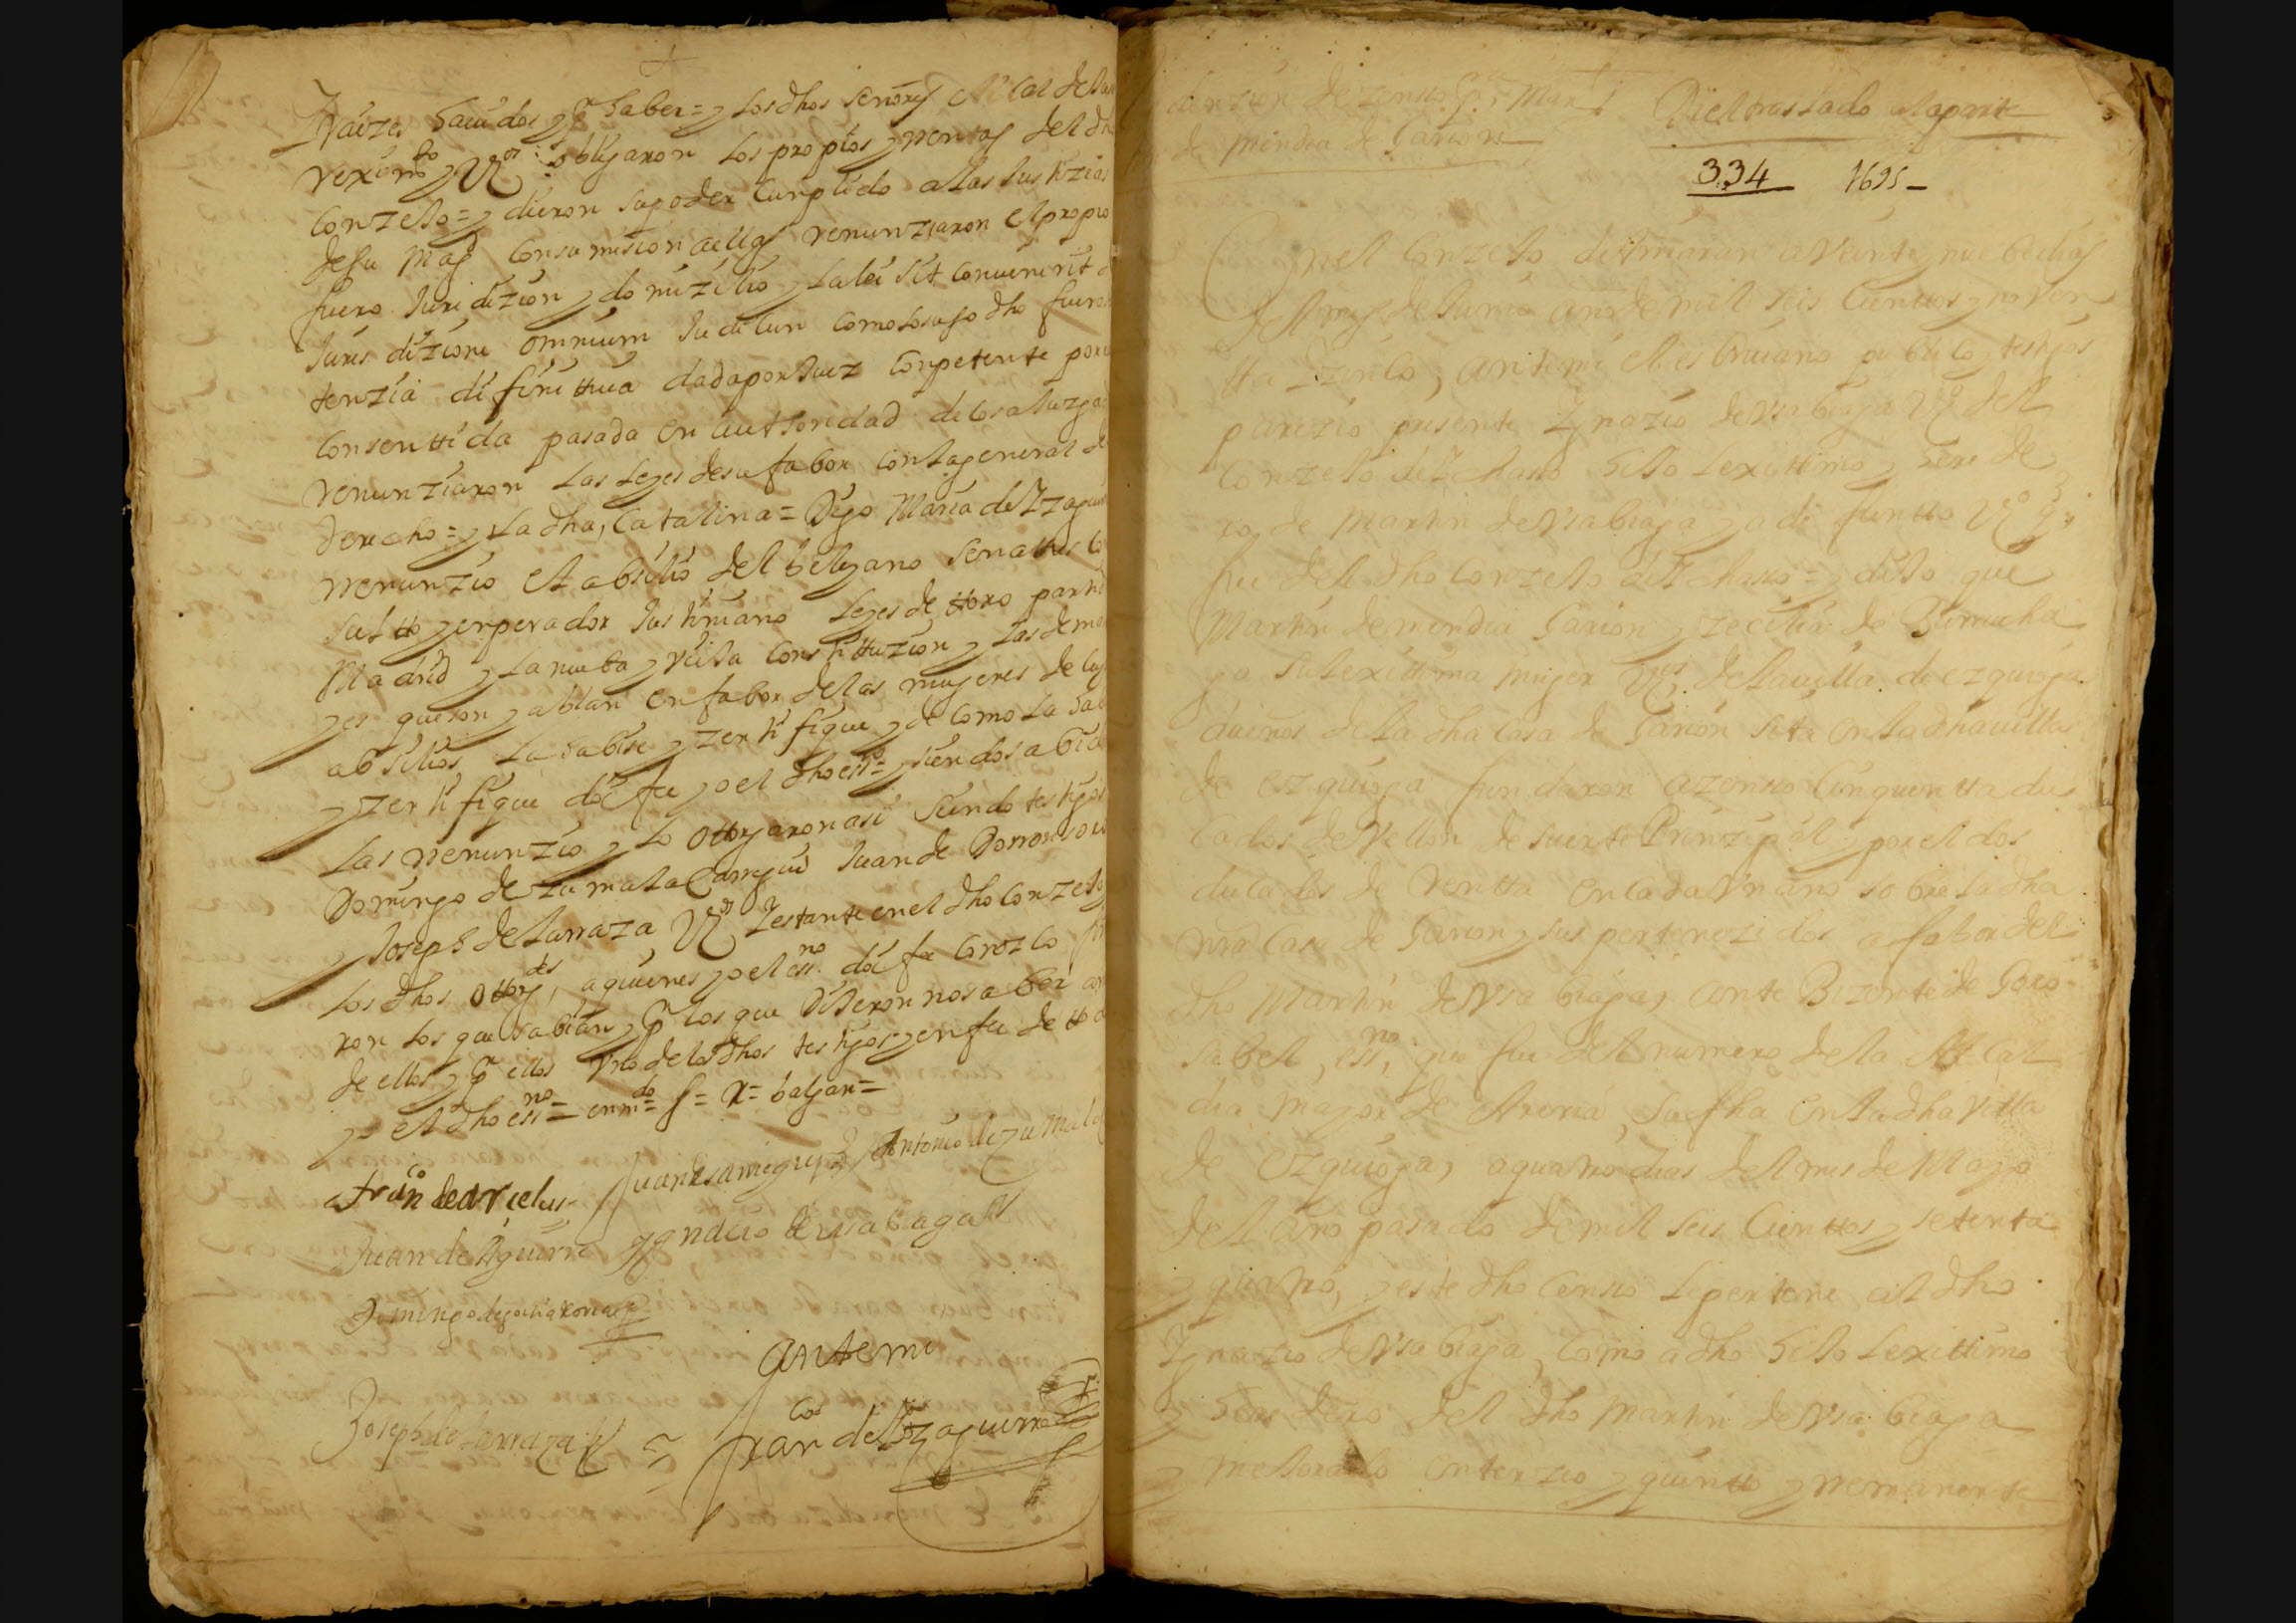 Raizes hauidos y P haber = y los dhos señores Alcal de
rexim.to y V.os obligaron los propios y rentas del dh
Conzejo = y dieron su poder Cunplido a las Justizias
de su Mag.d con sumision a ellas renunziaron el propio
fuero Juridizion y domizilio y la lei sit conuenerit
Juris dizione omnium Judicun como lo susodho fuera
tenzia difinittiua dada por Juez conpetente por
Consenttida pasada en authoridad de Cosa Juzga
renunziaron las leyes de su fabor con la general de
derecho = y la dha, Catalina = Digo Maria de Yzaguirr
renunzio el absilio del beleyano senattus Co
sultto y enperador Justiniano leyes de ttoro partid
Madrid y la nueba y vieja Consttittuzion y las dema
yes que son y ablan en fabor de las mugeres de cuyo
absilios la abise y zertifique y de como la
y zertifique doi fee yo el dho ess.no = y siendo sabid
las renunzio y lo ottorgaron asi siendo testigos
Domingo de zumalacarregui Juan de Dorronsoro
y Joseph de Larraza V.os y estante en el dho Conzejo y
los dhos ottorg.des, a quienes yo el ess.no doi fee conozco fir
ron los que sabian y P los que dijeron no saber
de ellos y P ellos vno de los dhos testigos y en fee de tto
yo el dho ess.no = enm.do = f = r = balgan =
Fran.co de
Antonio de zumala
Juan de Aguirre Ygnacio de vsabiaga
Domingo de
Joseph de Larraza
Antemi
Fran.co de Yzaguirre
de mendia de Garion
Diel traslado a la parte
334 1695
En el Conzejo de Ytmaran a veinte y nuebe dias
del mes de Junio año de mil seis Cienttos y noven
tta y zinco, antemi el escriuano publico y testigos
parezio presente Ygnazio de vsabiaga V.o del
Conzejo de Ychasso hijo lexittimo y here de
ro de Martin de vsabiaga ya difuntto V.o q.
fue del dho Conzejo de Ychasso = y dijo que
Martin de mendia Garion y zecilia de
ga su lexittima muger V.os de la uilla de ezquioga
dueños de la dha casa de Garion sita en la dha uilla
de ezquioga fundaron a zenso Cinquentta du
cados de vellon de suerte Prinzipal y por el dos
ducados de rentta en cada vn año sobre la dha
su casa de Garion y sus pertenezidos a fabor del
dho Martin de vsabiaga, ante Bizente de Goro
sabel, ess.no, que fue del numero de la Alcal
dia mayor de Areria, su fha en la dha villa
de ezquioga, a quatro dias del mes de Mayo
del año pasado de mil seis Cienttos y setenta
y quatro, y este dho Censo le pertene al dho
Ygnazio de vsabiaga, como a dho hijo lexittimo
y heredero del dho Martin de vsabiaga
y mejorado en terzio y quintto y remanente